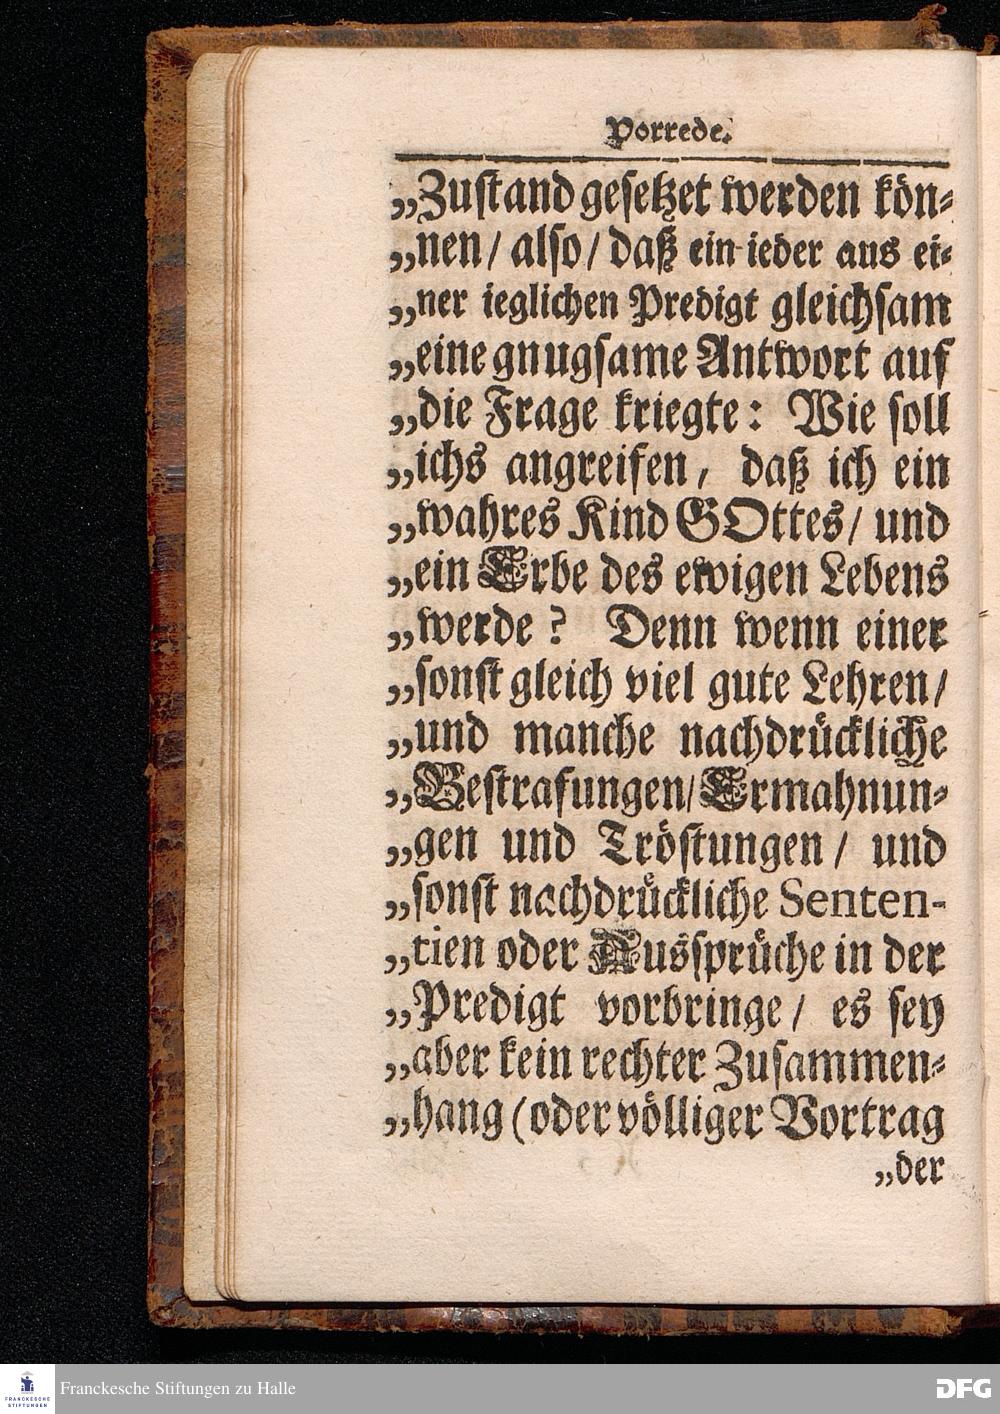 Vorrede.
„Zustand gesetzet werden kön-
„nen/ also/ daß ein ieder aus ei-
„ner ieglichen Predigt gleichsam
„eine gnugsame Antwort auf
„die Frage kriegte: Wie soll
„ichs angreifen, daß ich ein
„wahres Kind GOttes/ und
„ein Erbe des ewigen Lebens
„werde? Denn wenn einer
„sonst gleich viel gute Lehren/
„und manche nachdrückliche
„Bestrafungen/ Ermahnun-
„gen und Tröstungen/ und
„sonst nachdrückliche Senten-
„tien oder Aussprüche in der
„Predigt vorbringe/ es sey
„aber kein rechter Zusammen-
„hang (oder völliger Vortrag
„der
FRANCKESCHE
STIFTUNGEN
Franckesche Stiftungen zu Halle
DFG